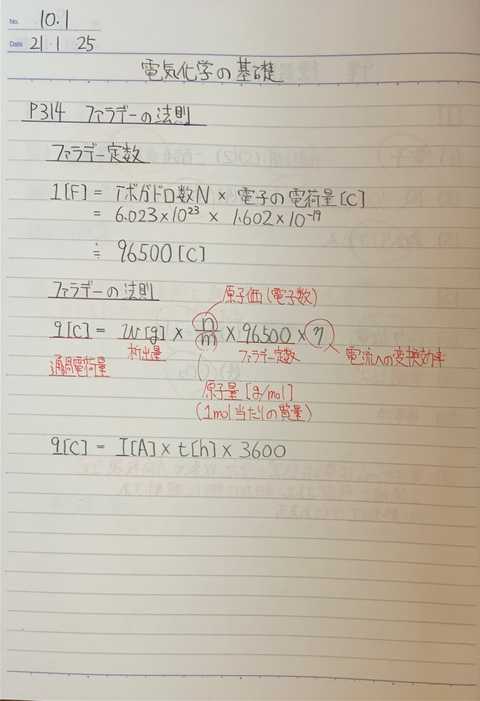 No. 10.1
Date 21・1 25
電気化学の基礎
P314 ファラデーの法則
ファラデー定数
1[F] = アボガドロ数N × 電子の電荷量[C]
= 6.023×10²³ × 1.602×10⁻¹⁹
≒ 96500[C]
ファラデーの法則
原子価(電子数)
q[C] = w[g] × n/m × 96500 × η
通電電荷量 析出量 ファラデー定数 電流への変換効率
原子量[g/mol]
(1mol当たりの質量)
q[C] = I[A] × t[h] × 3600